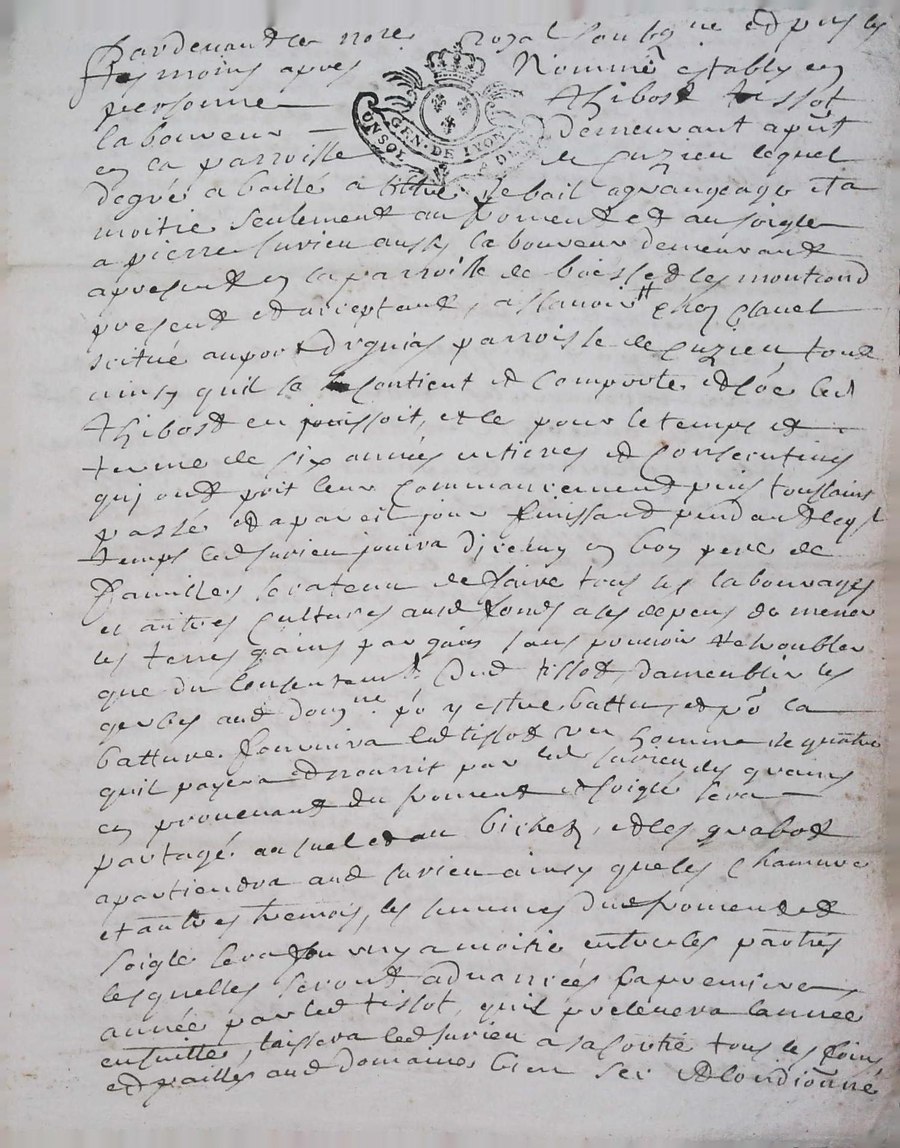 Pardevant le nore royal soubzné et puis les
tesmoins apres Nommé estably en
personne Thibost tissot
laboureur demeurant apnt
en la parroisse de Cuzieu lequel
GEN. DE LYON
UN SOL
degré a baillé a tiltre de bail a grangeage et a
moitié seulement au froment et au soigle
a pierre Jurieu aussy laboureur demeurant
apresent en la parroisse de boisset les montrond
present et acceptant, asscavoir chez Clavel
scitué au port parroisse de Cuzieu tout
ainsy quil se contient et comporte et que led
Thibost en jouissoit, et ce pour le temps et
terme de six années entieres et consecutives
quj ont prit leur commancement puis toussaint
passé et a pareil jour finissant pendant lequel
temps led Jurieu jouira dicelluy en bon pere de
famille, sera tenu de faire tous les labourages
et autres cultures aud fonds a ses depens de mener
les terres sans pouvoir trehoubler
que du consentemt dud tissot, dameubler les
gerbes aud domne po y estre battu, et po la
batture fournira led tissot un homme
quil payera et nourrit par led Jurieu, les grains
en provenant du froment et soigle sera
partagé au suel et au bichet, et les
apartiendra aud Jurieu ainsy que les Chanvre
et autres tremois, les semences dud froment et
soigle sera fourny a moitié entre les parties
lesquelles seront advancées la premiere
année par led tissot, quil prelevera lannée
ensuitte, laissera led Jurieu a sa sortie tous les foins
et pailles aud domaine bien